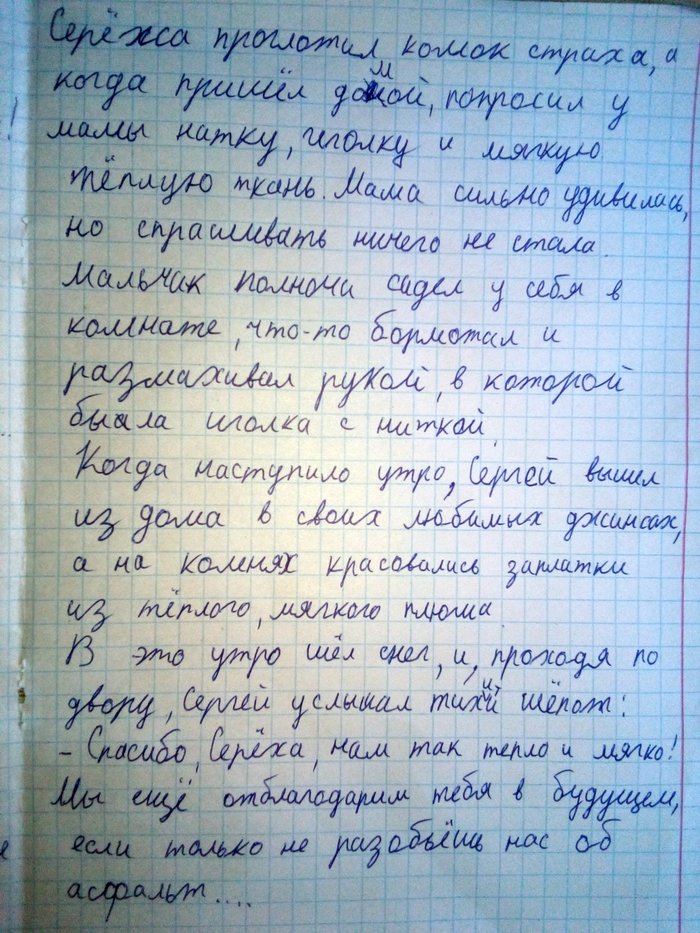 Серёжа проглотил комок страха, а
когда пришёл домой, попросил у
мамы натку, иголку и мягкую
тёплую ткань. Мама сильно удивилась,
но спрашивать ничего не стала.
Мальчик полночи сидел у себя в
комнате, что-то бормотал и
размахивал рукой, в которой
была иголка с ниткой.
Когда наступило утро, Сергей вышел
из дома в своих любимых джинсах,
а на коленях красовались заплатки
из тёплого, мягкого плюша
В это утро шёл снег, и, проходя по
двору, Сергей услышал тихий шёпот:
- Спасибо, Серёха, нам так тепло и мягко!
Мы ещё отблагодарим тебя в будущем,
если только не разобьёшь нас об
асфальт....